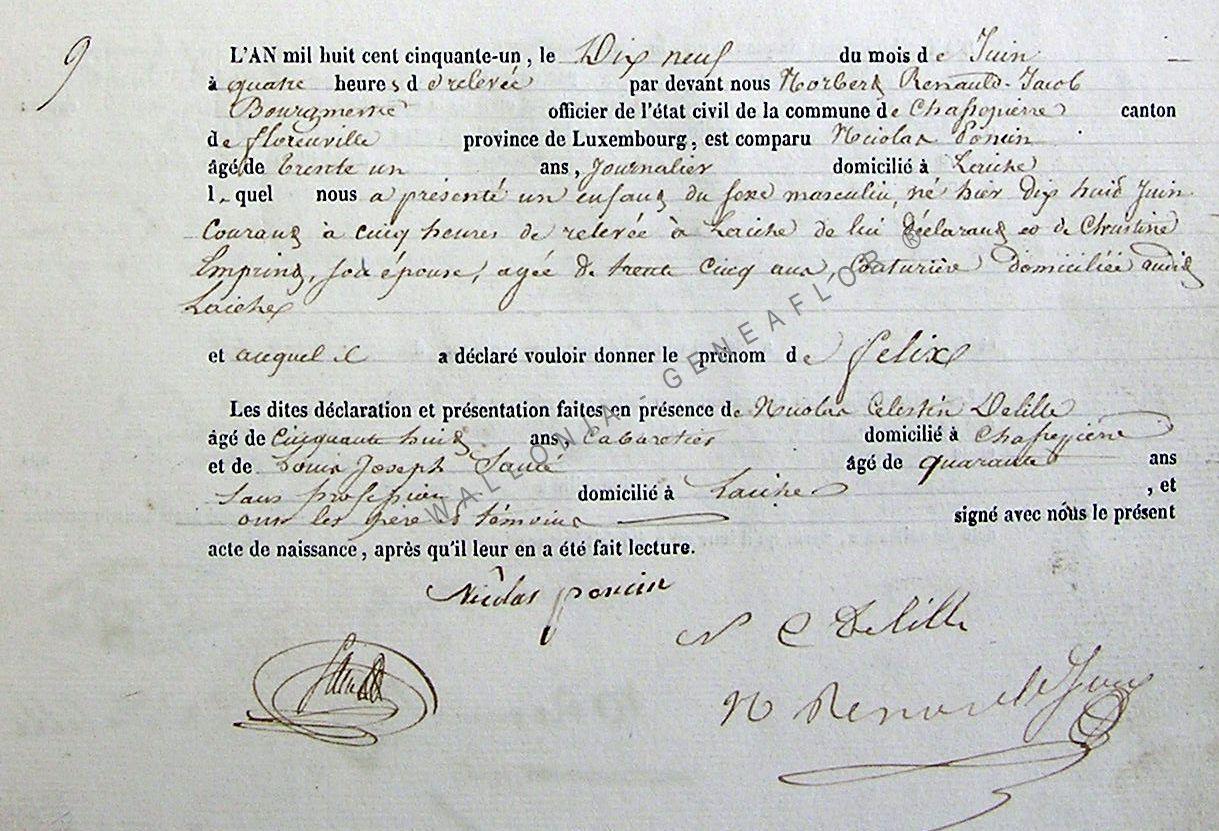 9
L'AN mil huit cent cinquante-un, le Dix neuf du mois de Juin
à quatre heures de relevée par devant nous Norbert Renauld-Jacob
Bourgmestre officier de l'état civil de la commune de Chassepierre canton
de florenville province de Luxembourg, est comparu Nicolas Poncin
âgé de trente un ans, Journalier domicilié à Laiche
lequel nous a présenté un enfant du sexe masculin, né hier Dix huit Juin
Courant à cinq heures de relevée à Laiche de lui déclarant et de Christine
Emprint, son épouse, agée de trente cinq ans, Couturière domiciliée audit
Laiche
et auquel il a déclaré vouloir donner le prénom de felix
Les dites déclaration et présentation faites en présence de Nicolas Celestin Delille
âgé de Cinquante huit ans, Cabaretier domicilié à Chassepierre
et de Louis Joseph âgé de quarante ans
sans profession domicilié à Laiche, et
ont les père et témoins signé avec nous le présent
acte de naissance, après qu'il leur en a été fait lecture.
Nicolas poncin
N C Delille
N Renauld Jacob
WALLONIA - GENEAFLOR ®